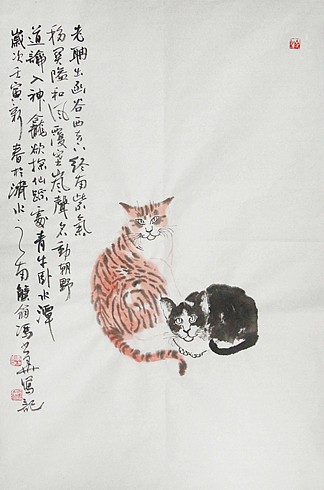 老聃出函谷西去終南紫氣
稔異隘和風覆室嵐聲名動朝野
道歸入神龕欲探仙踪處青牛卧水潭
歲次壬寅新春於濟水之南